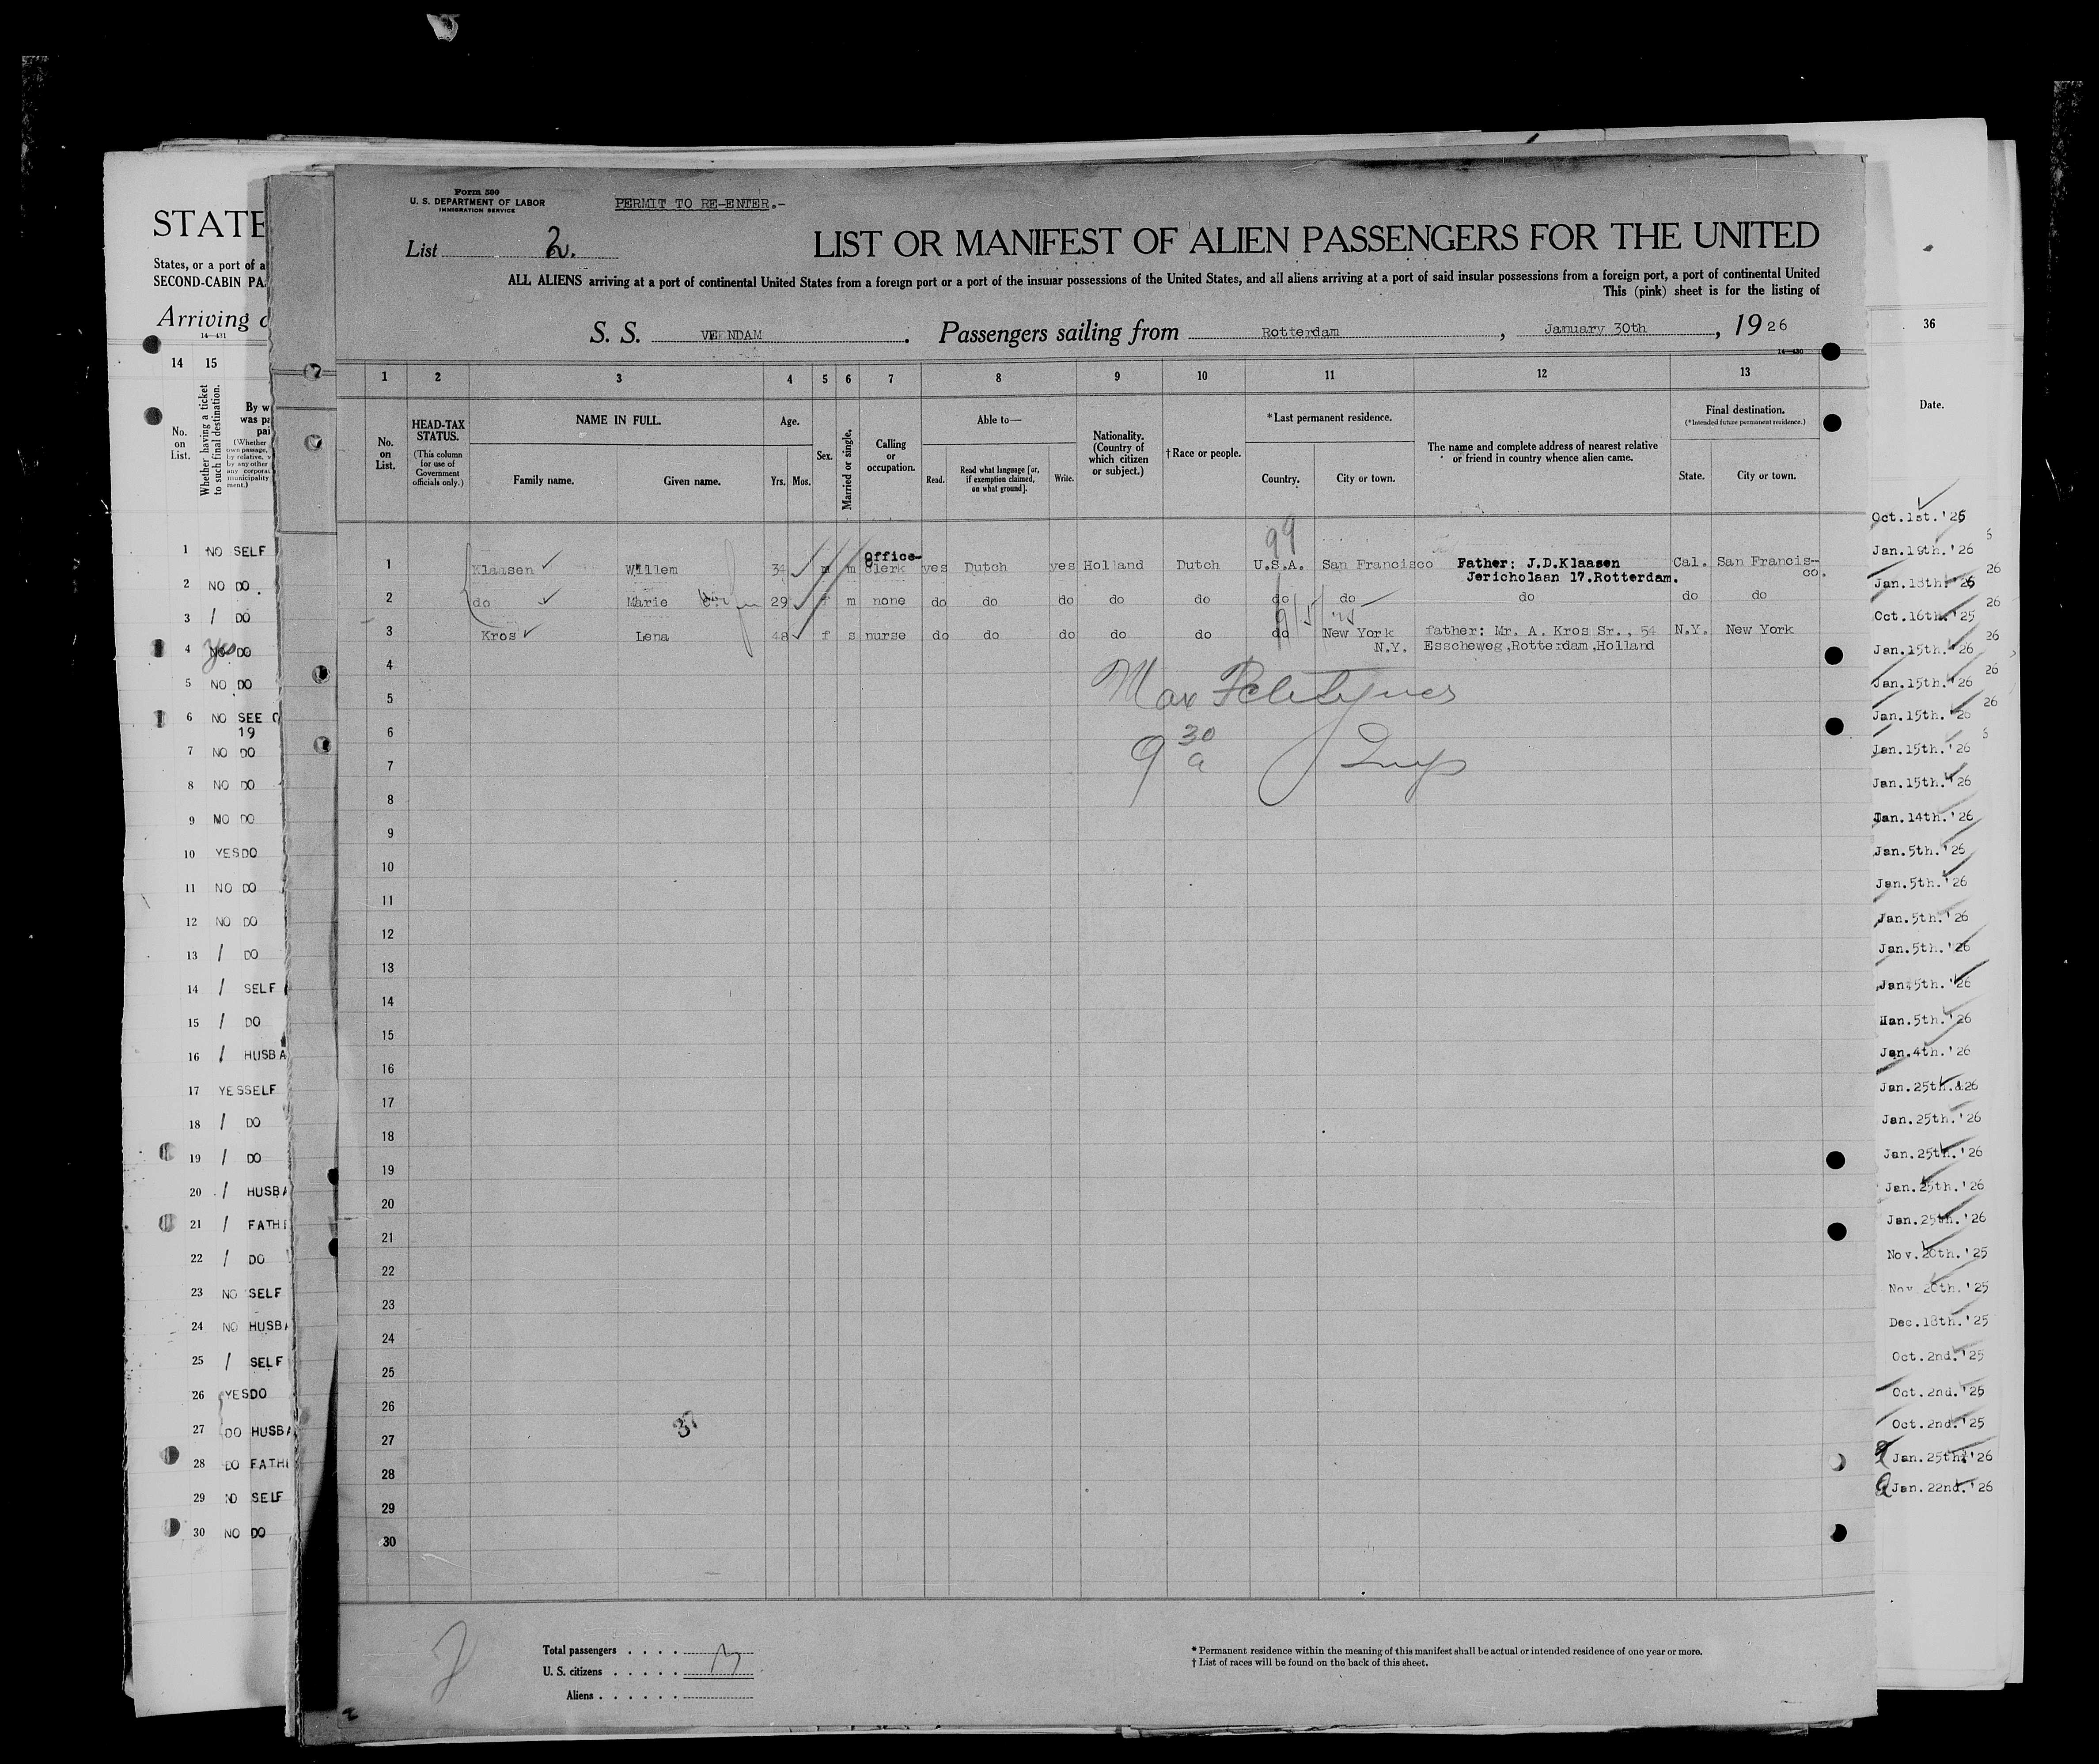 Form 500
U. S. DEPARTMENT OF LABOR
IMMIGRATION SERVICE
PERMIT TO RE-ENTER.-
List 2.
LIST OR MANIFEST OF ALIEN PASSENGERS FOR THE UNITED
ALL ALIENS arriving at a port of continental United States from a foreign port or a port of the insular possessions of the United States, and all aliens arriving at a port of said insular possessions from a foreign port, a port of continental United
This (pink) sheet is for the listing of
S. S. VEENDAM. Passengers sailing from Rotterdam, January 30th, 1926
14—430
1 2 3 4 5 6 7 8 9 10 11 12 13
No. on List.
HEAD-TAX STATUS.
(This column for use of Government officials only.)
NAME IN FULL.
Family name. Given name.
Age.
Yrs. Mos.
Sex.
Married or single.
Calling or occupation.
Able to—
Read. Read what language [or, if exemption claimed, on what ground]. Write.
Nationality. (Country of which citizen or subject.)
† Race or people.
* Last permanent residence.
Country. City or town.
The name and complete address of nearest relative or friend in country whence alien came.
Final destination.
(* Intended future permanent residence.)
State. City or town.
99
1 Klaasen Willem 34 m m Office-Clerk yes Dutch yes Holland Dutch U.S.A. San Francisco Father: J.D.Klaasen Cal. San Francis-
Jericholaan 17.Rotterdam. co.
2 do Marie 29 f m none do do do do do do do do do do
3 Kros Lena 48 f s nurse do do do do do do New York father: Mr. A. Kros Sr., 54 N.Y. New York
N.Y. Esscheweg,Rotterdam,Holland
4
5 Max
6 9 30
7 a Insp
8
9
10
11
12
13
14
15
16
17
18
19
20
21
22
23
24
25
26
27
28
29
30
Total passengers . . . .
U. S. citizens . . . . .
Aliens . . . . . .
* Permanent residence within the meaning of this manifest shall be actual or intended residence of one year or more.
† List of races will be found on the back of this sheet.
STATE
States, or a port of a
SECOND-CABIN PA
Arriving
14—431
14 15
No. on List.
Whether having a ticket to such final destination.
By w
was pa
pai
(Whether
own passage,
by relative, w
by any other
any corpora
municipality
ment.)
1 NO SELF
2 NO DO
3 / DO
4 yes DO
5 NO DO
6 NO SEE
19
7 NO DO
8 NO DO
9 NO DO
10 YES DO
11 NO DO
12 NO DO
13 / DO
14 / SELF
15 / DO
16 / HUSBA
17 YES SELF
18 / DO
19 / DO
20 / HUSBA
21 / FATHE
22 / DO
23 NO SELF
24 NO HUSBA
25 / SELF
26 YES DO
27 DO HUSBA
28 DO FATHE
29 NO SELF
30 NO DO
36
Date.
Oct.1st.'25
Jan.19th.'26
Jan.18th.'26
Oct.16th.'25
Jan.15th.'26
Jan.15th.'26
Jan.15th.'26
Jan.15th.'26
Jan.15th.'26
Jan.14th.'26
Jan.5th.'26
Jan.5th.'26
Jan.5th.'26
Jan.5th.'26
Jan.5th.'26
Jan.5th.'26
Jan.4th.'26
Jan.25th.'26
Jan.25th.'26
Jan.25th.'26
Jan.25th.'26
Jan.25th.'26
Nov.20th.'25
Nov.20th.'25
Dec.18th.'25
Oct.2nd.'25
Oct.2nd.'25
Oct.2nd.'25
Jan.25th.'26
Jan.22nd.'26